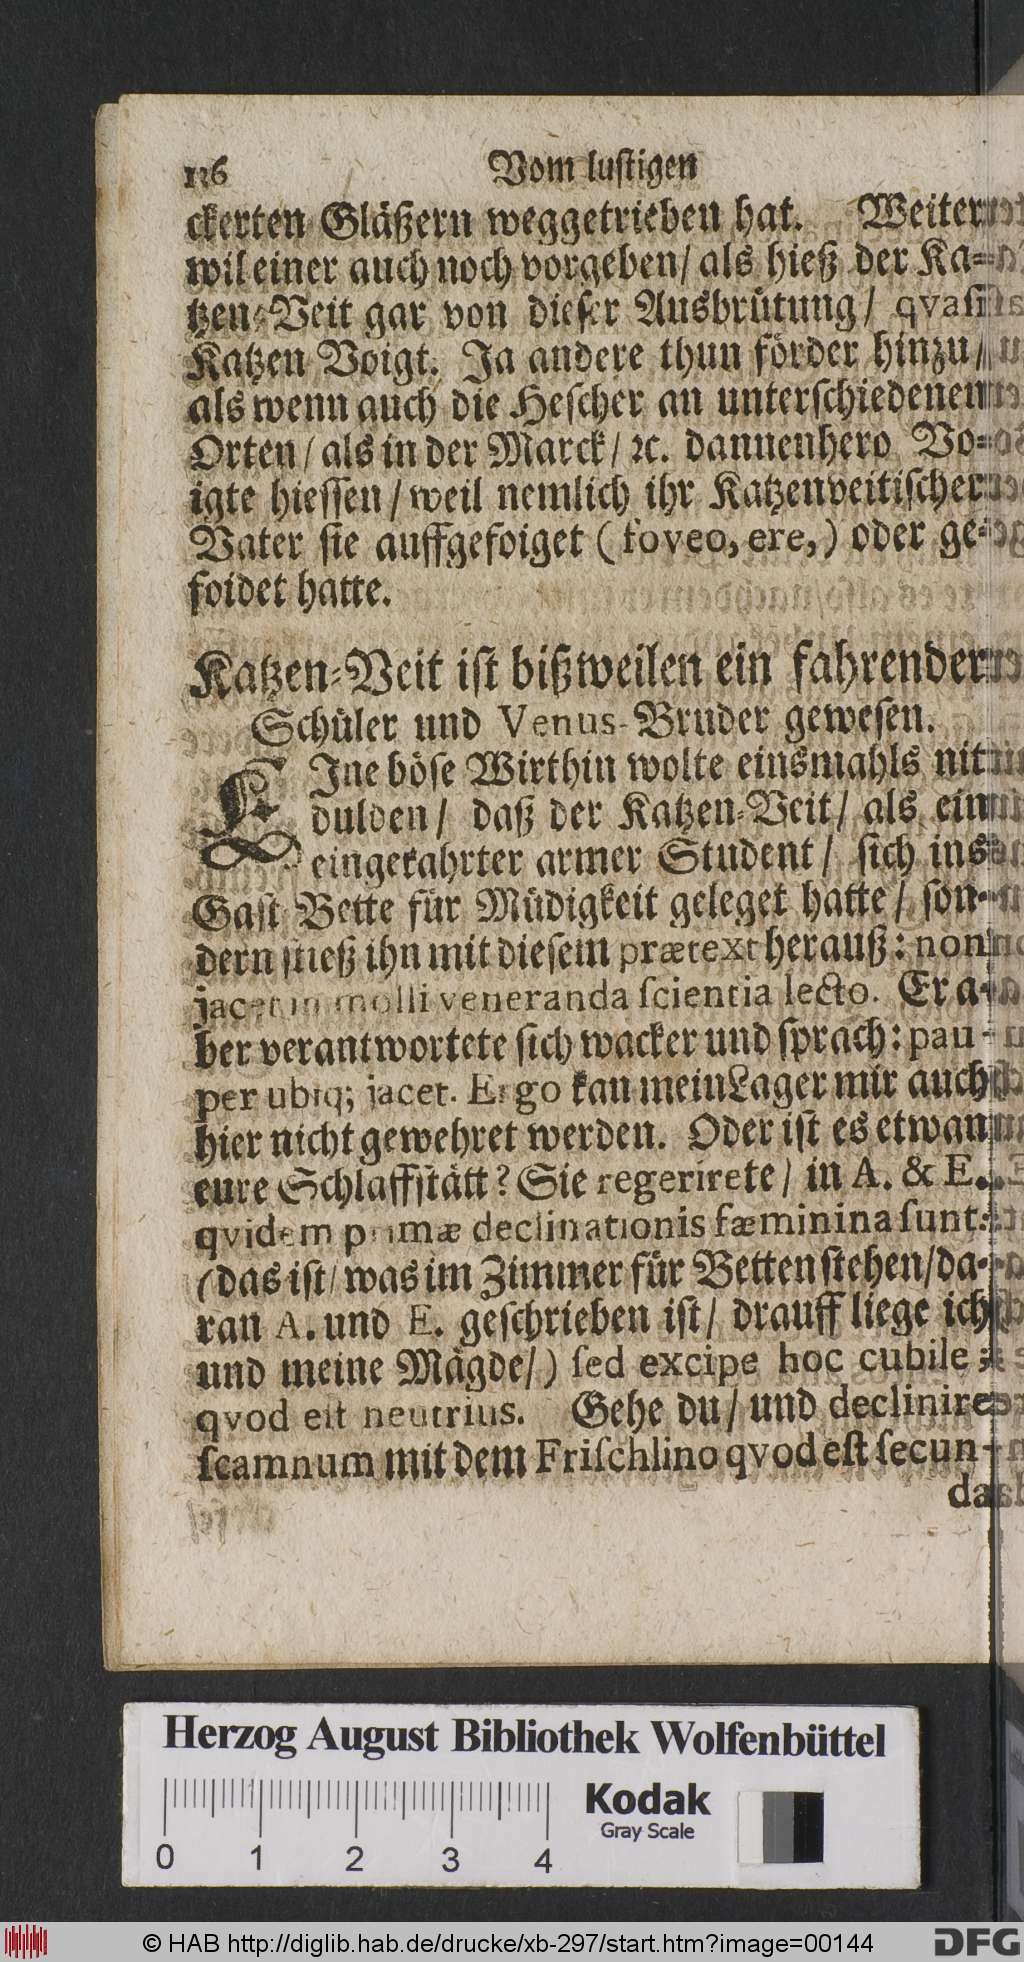 126 Vom lustigen
ckerten Gläßern weggetrieben hat. Weiter
wil einer auch noch vorgeben/ als hieß der Ka-
tzen-Veit gar von dieser Ausbrütung/ qvasi
Katzen Voigt. Ja andere thun förder hinzu/
als wenn auch die Hescher an unterschiedenen
Orten/ als in der Marck/ ꝛc. dannenhero Vo-
igte hiessen/ weil nemlich ihr Katzenveitischer
Vater sie auffgefoiget (foveo, ere,) oder ge-
foidet hatte.
Katzen-Veit ist bißweilen ein fahrender
Schüler und Venus-Bruder gewesen.
EJne böse Wirthin wolte einsmahls nit
dulden/ daß der Katzen-Veit/ als ein
eingekahrter armer Student/ sich ins
Gast Bette für Müdigkeit geleget hatte/ son-
dern stieß ihn mit diesem prætext herauß: non
jacet in molli veneranda scientia lecto. Er a-
ber verantwortete sich wacker und sprach: pau-
per ubiq; jacet. Ergo kan mein Lager mir auch
hier nicht gewehret werden. Oder ist es etwan
eure Schlaffstätt? Sie regerirete/ in A. & E.
qvidem primæ declinationis fæminina sunt:
(das ist/ was im Zimmer für Betten stehen/ da-
ran A. und E. geschrieben ist/ drauff liege ich
und meine Mägde/) sed excipe hoc cubile
qvod est neutrius. Gehe du/ und declinire
scamnum mit dem Frischlino qvod est secun-
dæ
Herzog August Bibliothek Wolfenbüttel
Kodak
Gray Scale
0 1 2 3 4
© HAB http://diglib.hab.de/drucke/xb-297/start.htm?image=00144
DFG